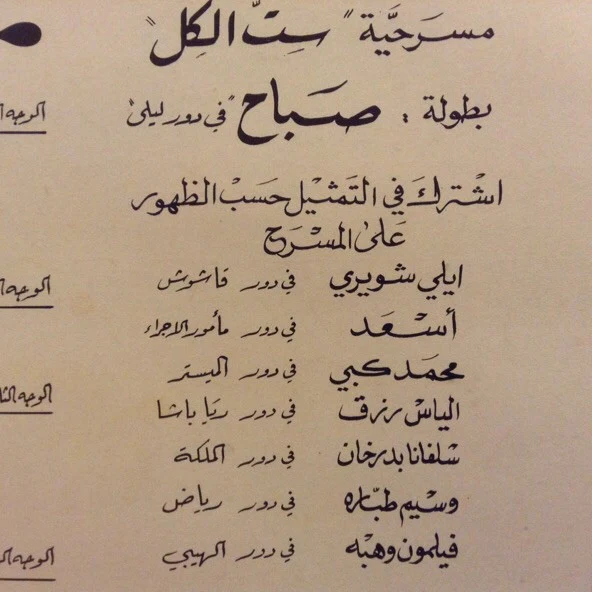 مسرحيّة "ستّ الكل"
بطولة : صَبَاح "في دور ليلى"
اشْتركَ في التَمثيْل حَسَبْ الظهور
عَلىٰ المسْرَح
ايلي شويري في دور قاشوش
أسْعَد في دور مأمور الاجراء
محمَد كبي في دور الميستر
الياسْ رزق في دور ريّا باشا
سْلفانا بدرخان في دور الملكة
وسْيم طبّاره في دور رياض
فيلمون وهبْه في دور الهيبي
الوجه
الوجه
الوجه الثا
الوجه